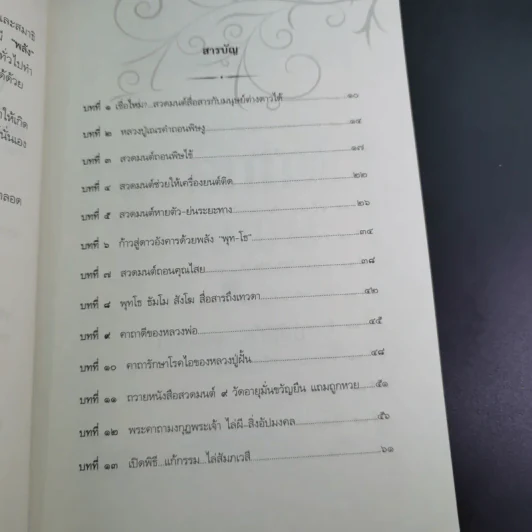 และสมาธิ
"พลัง"
ทั่วไปทำ
ให้เกิด
นั่นเอง
สารบัญ
บทที่ ๑ เชื่อไหมา...สวดมนต์สื่อสารกับมนุษย์ต่างดาวได้ ๑๐
บทที่ ๒ หลวงปู่เณรคำถอนพิษงู ๑๔
บทที่ ๓ สวดมนต์ถอนพิษไข้ ๑๗
บทที่ ๔ สวดมนต์ช่วยให้เครื่องยนต์ติด ๒๒
บทที่ ๕ สวดมนต์หายตัว-ย่นระยะทาง ๒๖
บทที่ ๖ ก้าวสู่ดาวอังคารด้วยพลัง "พุท-โธ" ๓๔
บทที่ ๗ สวดมนต์ถอนคุณไสย ๓๘
บทที่ ๘ พุทโธ ธัมโม สังโฆ สื่อสารถึงเทวดา ๔๒
บทที่ ๙ คาถาดีของหลวงพ่อ ๔๕
บทที่ ๑๐ คาถารักษาโรคไอของหลวงปู่ฝั้น ๔๘
บทที่ ๑๑ ถวายหนังสือสวดมนต์ ๙ วัดอายุมั่นขวัญยืน แถมถูกหวย ๕๑
บทที่ ๑๒ พระคาถามงกุฎพระเจ้า ไล่ผี-สิ่งอัปมงคล ๕๖
บทที่ ๑๓ เปิดพิธี...แก้กรรม...ไล่สัมภเวสี ๖๑